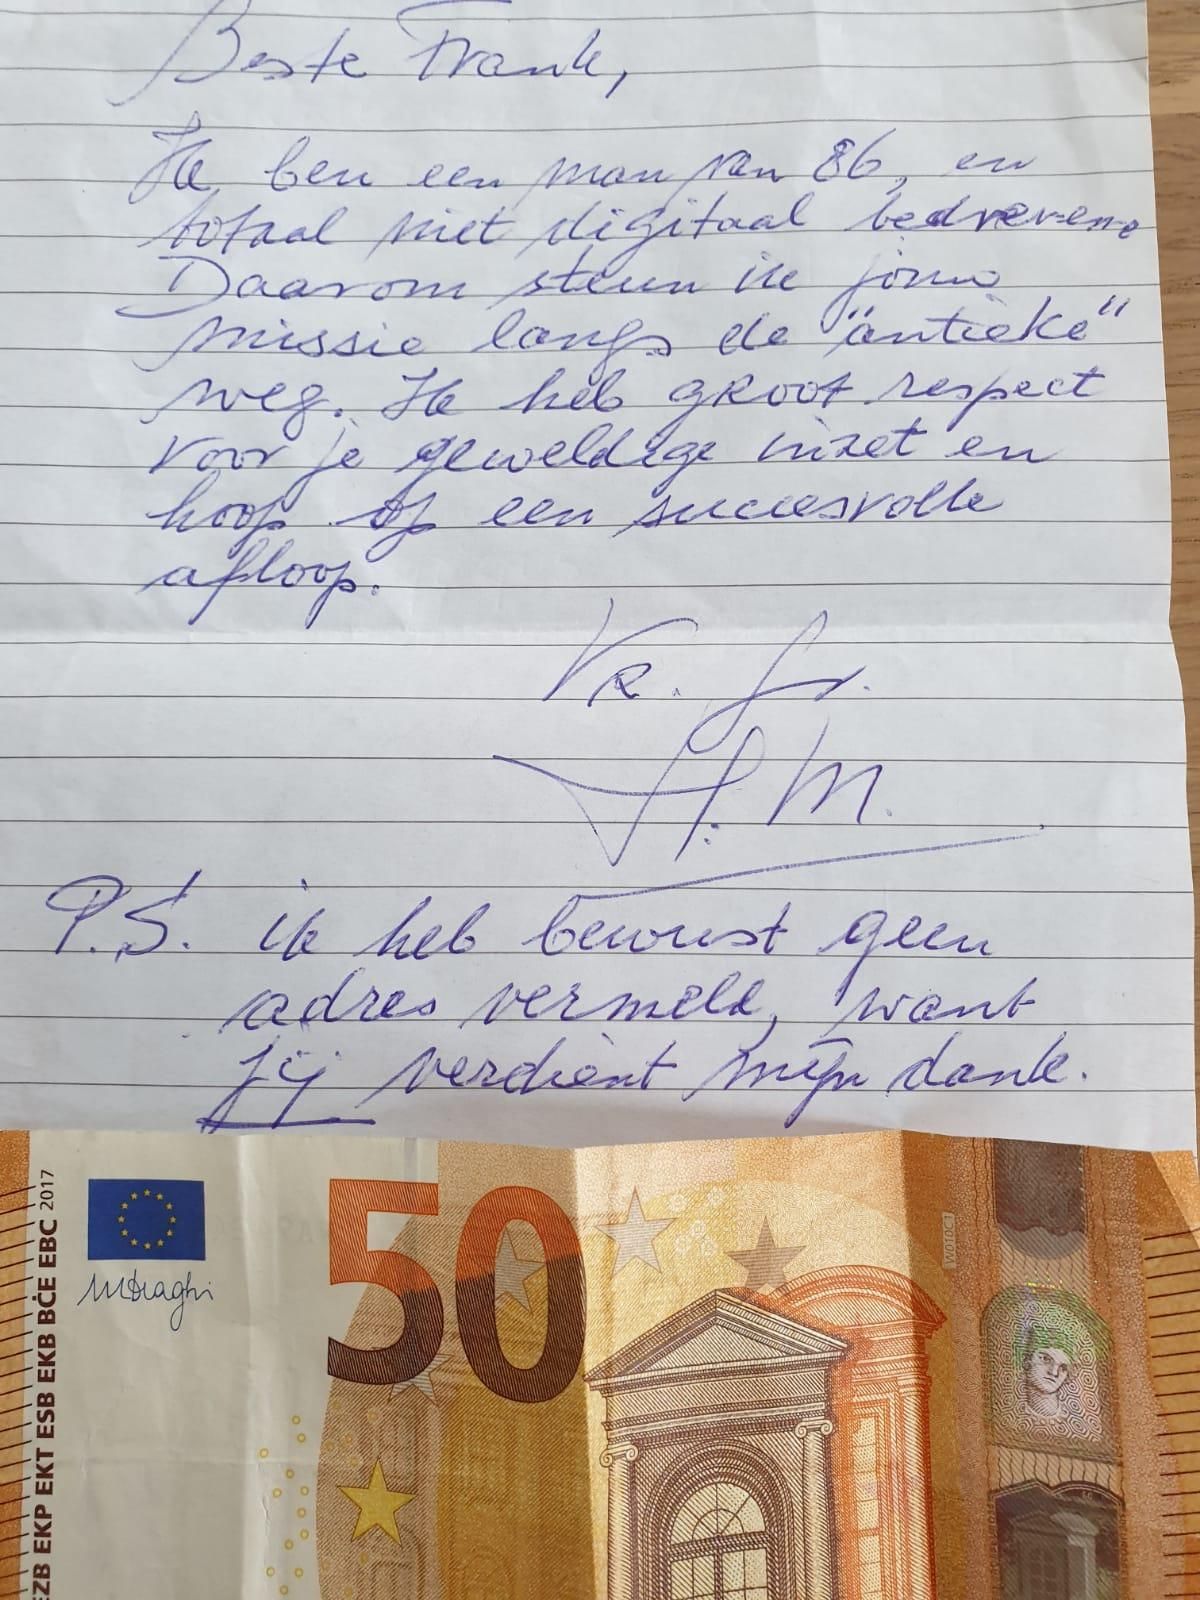 Beste Frank,
Ik ben een man van 86, en
totaal niet digitaal bedreven.
Daarom steun ik jouw
missie langs de "antieke"
weg. Ik heb groot respect
voor je geweldige inzet en
hoop op een succesvolle
afloop.
Vr. Gr.
P.S. ik heb bewust geen
adres vermeld, want
jij verdient mijn dank.
EZB EKP EKT ESB EKB BĊE EBC 2017
MDraghi
50
W010C1